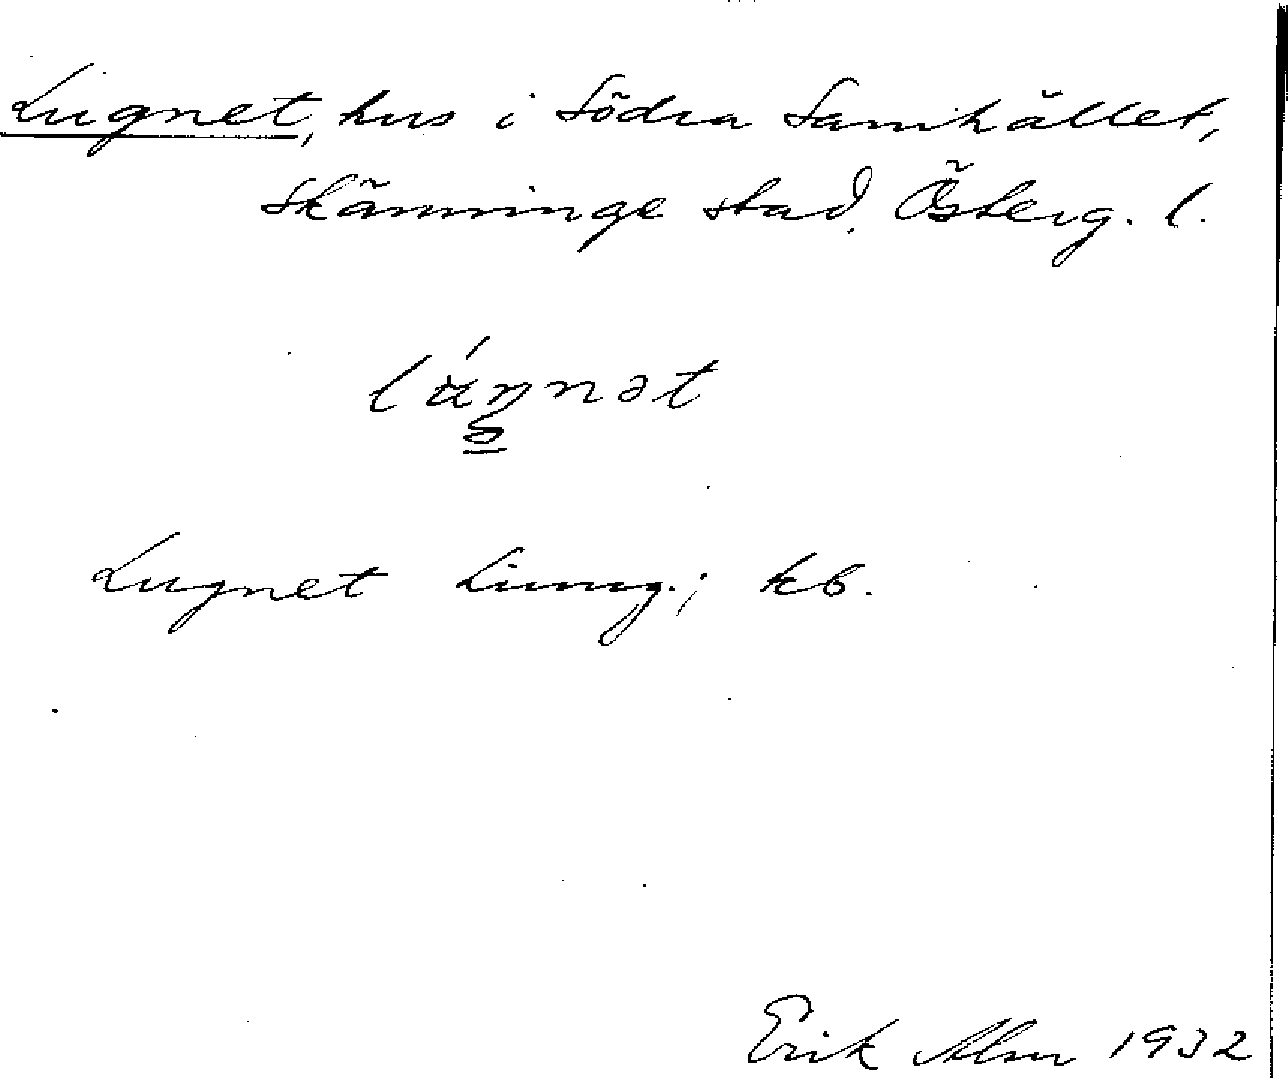 Lugnet, hus i Södra Samhället,
Skänninge stad, Österg. l.
Lugnet Ljung.; kb.
Erik Alm 1932